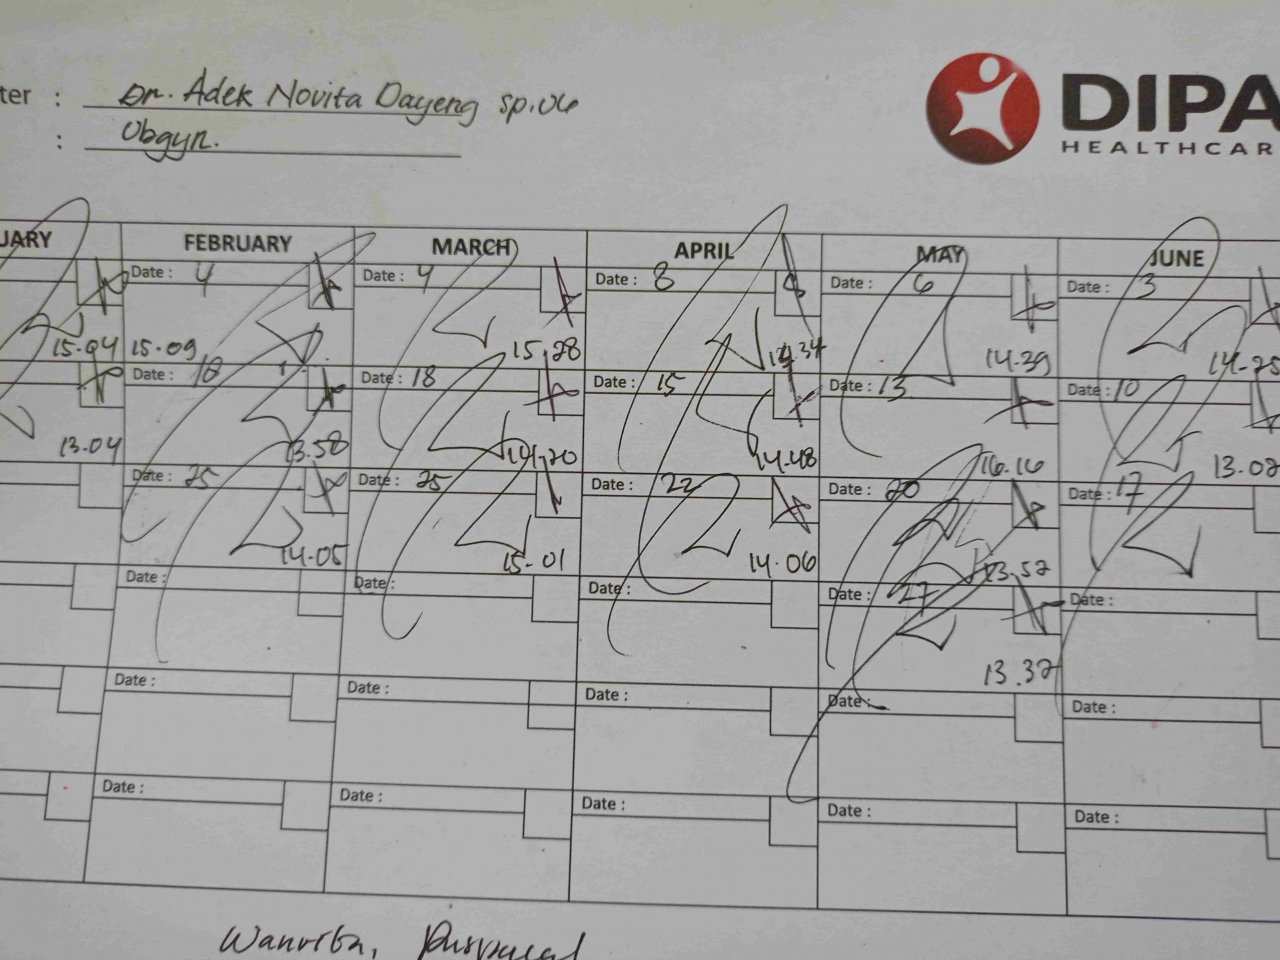 ter : Dr. Adek Novita Dayeng sp.OG
: Obgyn.
DIPA
HEALTHCAR
UARY FEBRUARY MARCH APRIL MAY JUNE
Date : 4 Date : 4 Date : 8 Date : 6 Date : 3
15.04 15.09 15.28 14.34 14.39 14-25
Date : 18 Date : 18 Date : 15 Date : 13 Date : 10
13.04 13.58 14.20 14.48 16.16 13.02
Date : 25 Date : 25 Date : 22 Date : 20 Date : 17
14.05 15.01 14.06 13.52
Date : Date : Date : Date : 27 Date :
13.32
Date : Date : Date : Date : Date :
Date : Date : Date : Date : Date :